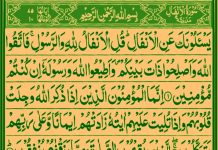 بِسْمِ اللهِ الرَّحْمٰنِ الرَّحِيْمِ
يَسْـَٔلُوْنَكَ عَنِ الْاَنْفَالِ قُلِ الْاَنْفَالُ لِلّٰهِ وَالرَّسُوْلِ فَاتَّقُوا
اللهَ وَاَصْلِحُوْا ذَاتَ بَيْنِكُمْ وَاَطِيْعُوا اللهَ وَرَسُوْلَهٗٓ اِنْ كُنْتُمْ
مُّؤْمِنِيْنَ ۝ اِنَّمَا الْمُؤْمِنُوْنَ الَّذِيْنَ اِذَا ذُكِرَ اللهُ وَجِلَتْ
قُلُوْبُهُمْ وَاِذَا تُلِيَتْ عَلَيْهِمْ اٰيٰتُهٗ زَادَتْهُمْ اِيْمَانًا وَّعَلٰى رَبِّهِمْ